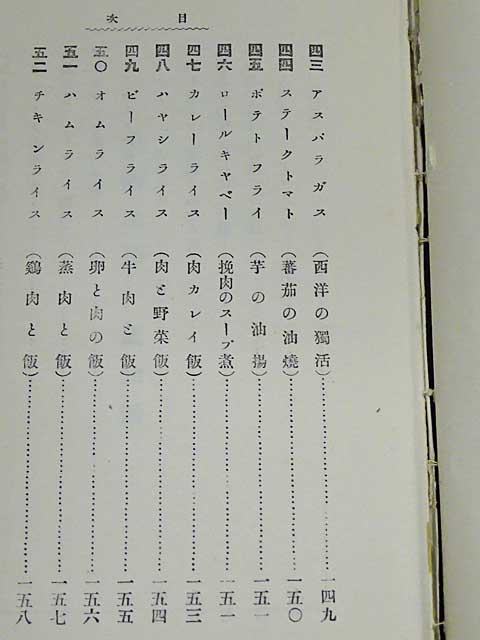 目次
四三 アスパラガス (西洋の獨活)…一四九
四四 ステークトマト (蕃茄の油燒)…一五〇
四五 ポテトフライ (芋の油揚)…一五一
四六 ロールキャベー (挽肉のスープ煮)…一五一
四七 カレーライス (肉カレイ飯)…一五三
四八 ハヤシライス (肉と野菜飯)…一五四
四九 ビーフライス (牛肉と飯)…一五五
五〇 オムライス (卵と肉の飯)…一五六
五一 ハムライス (蒸肉と飯)…一五七
五二 チキンライス (鷄肉と飯)…一五八